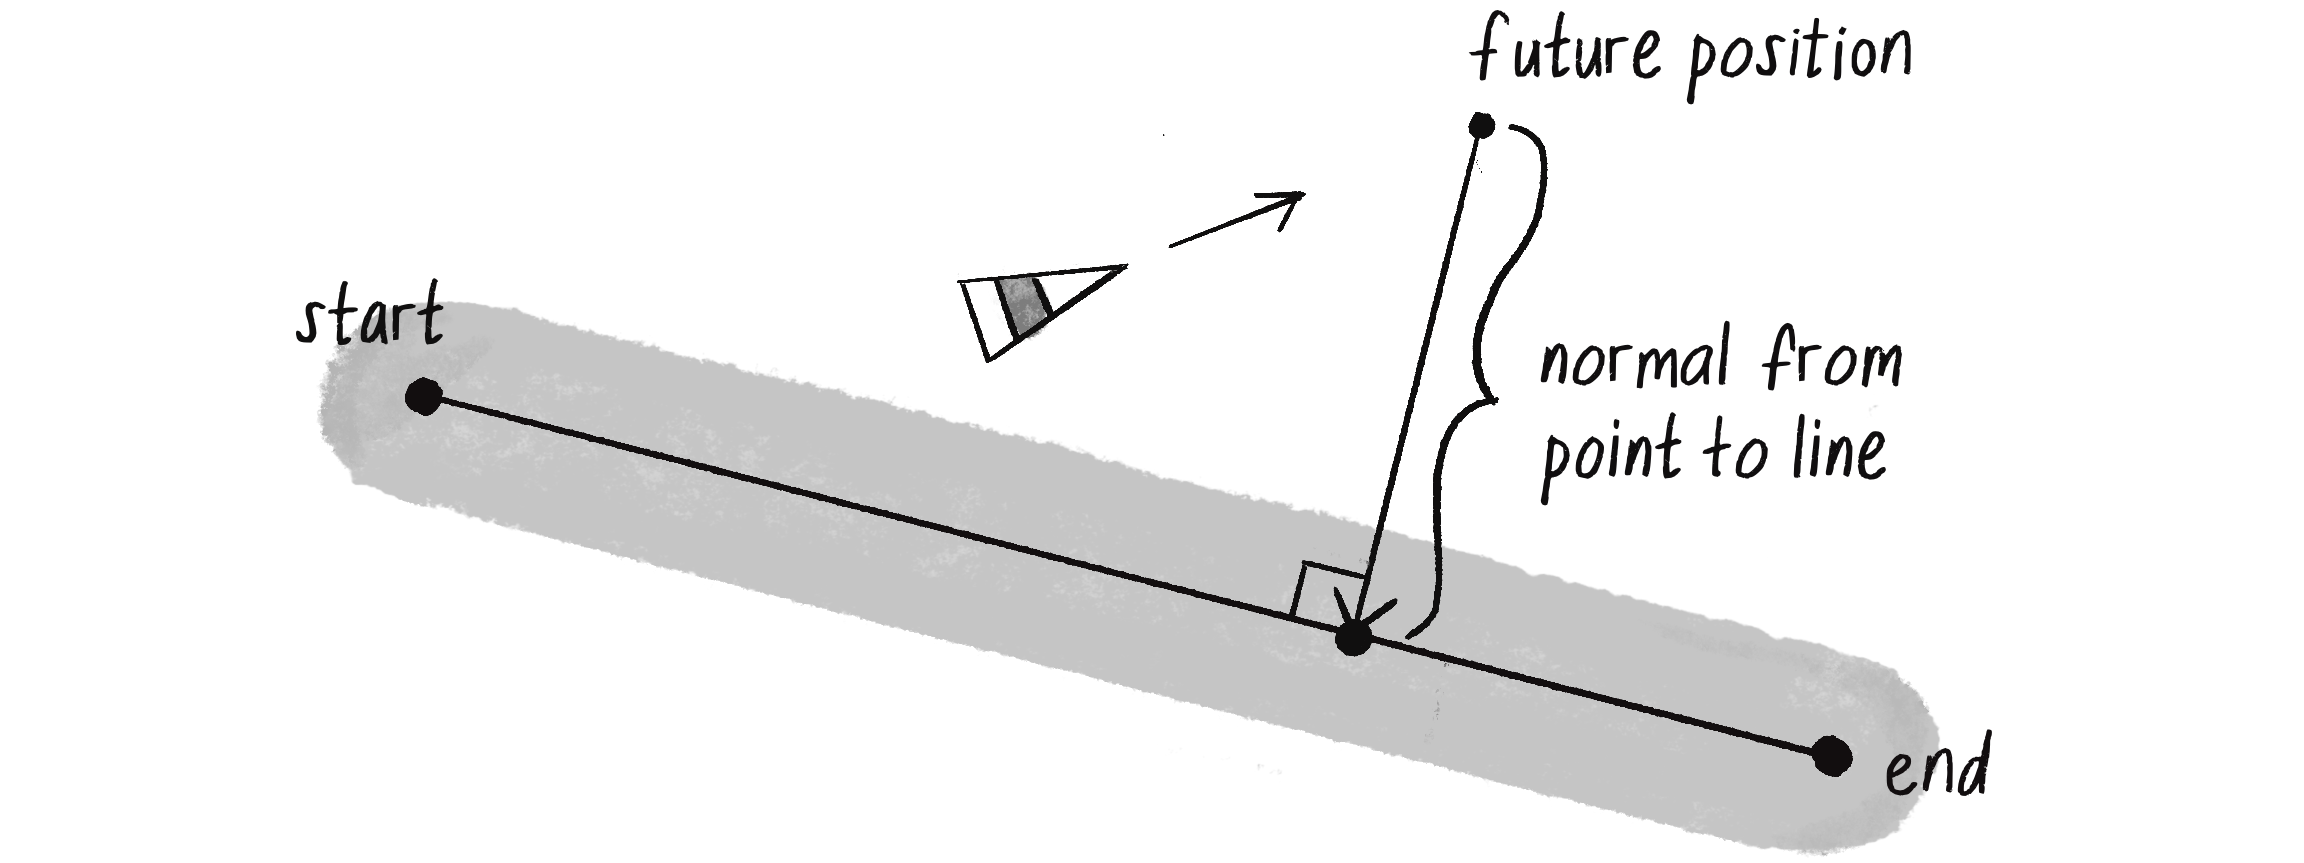 future position
start
normal from
point to line
end